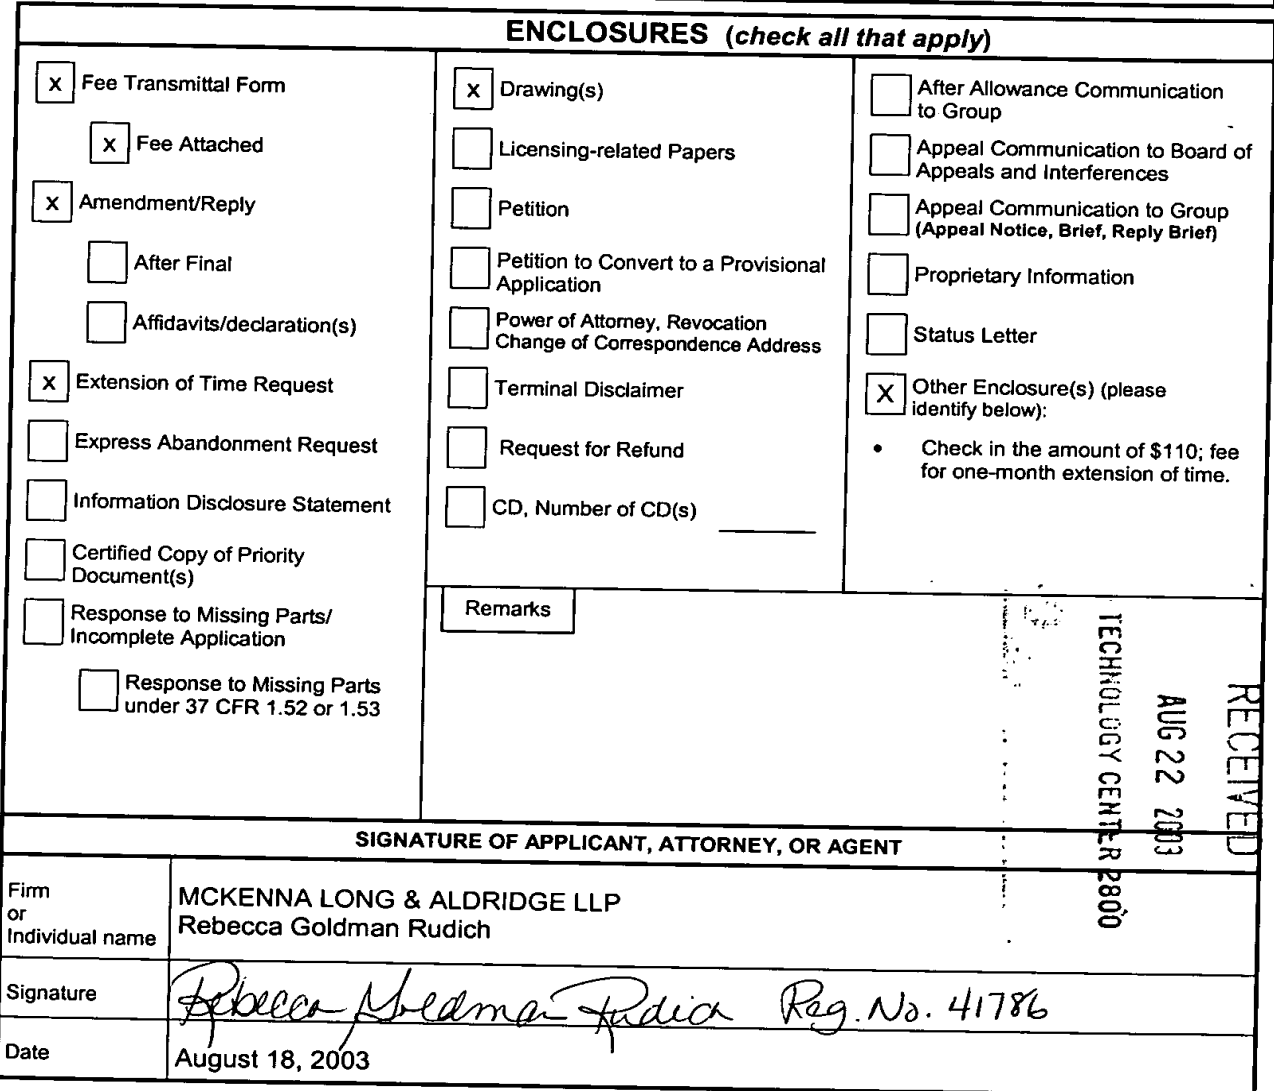 ENCLOSURES (check all that apply)
x Fee Transmittal Form
x Fee Attached
x Amendment/Reply
After Final
Affidavits/declaration(s)
x Extension of Time Request
Express Abandonment Request
Information Disclosure Statement
Certified Copy of Priority
Document(s)
Response to Missing Parts/
Incomplete Application
Response to Missing Parts
under 37 CFR 1.52 or 1.53
x Drawing(s)
Licensing-related Papers
Petition
Petition to Convert to a Provisional
Application
Power of Attorney, Revocation
Change of Correspondence Address
Terminal Disclaimer
Request for Refund
CD, Number of CD(s)
After Allowance Communication
to Group
Appeal Communication to Board of
Appeals and Interferences
Appeal Communication to Group
(Appeal Notice, Brief, Reply Brief)
Proprietary Information
Status Letter
X Other Enclosure(s) (please
identify below):
• Check in the amount of $110; fee
for one-month extension of time.
Remarks
RECEIVED
AUG 22 2003
TECHNOLOGY CENTER 2800
SIGNATURE OF APPLICANT, ATTORNEY, OR AGENT
Firm
or
Individual name
MCKENNA LONG & ALDRIDGE LLP
Rebecca Goldman Rudich
Signature
Rebecca Goldman Rudich Reg. No. 41786
Date
August 18, 2003